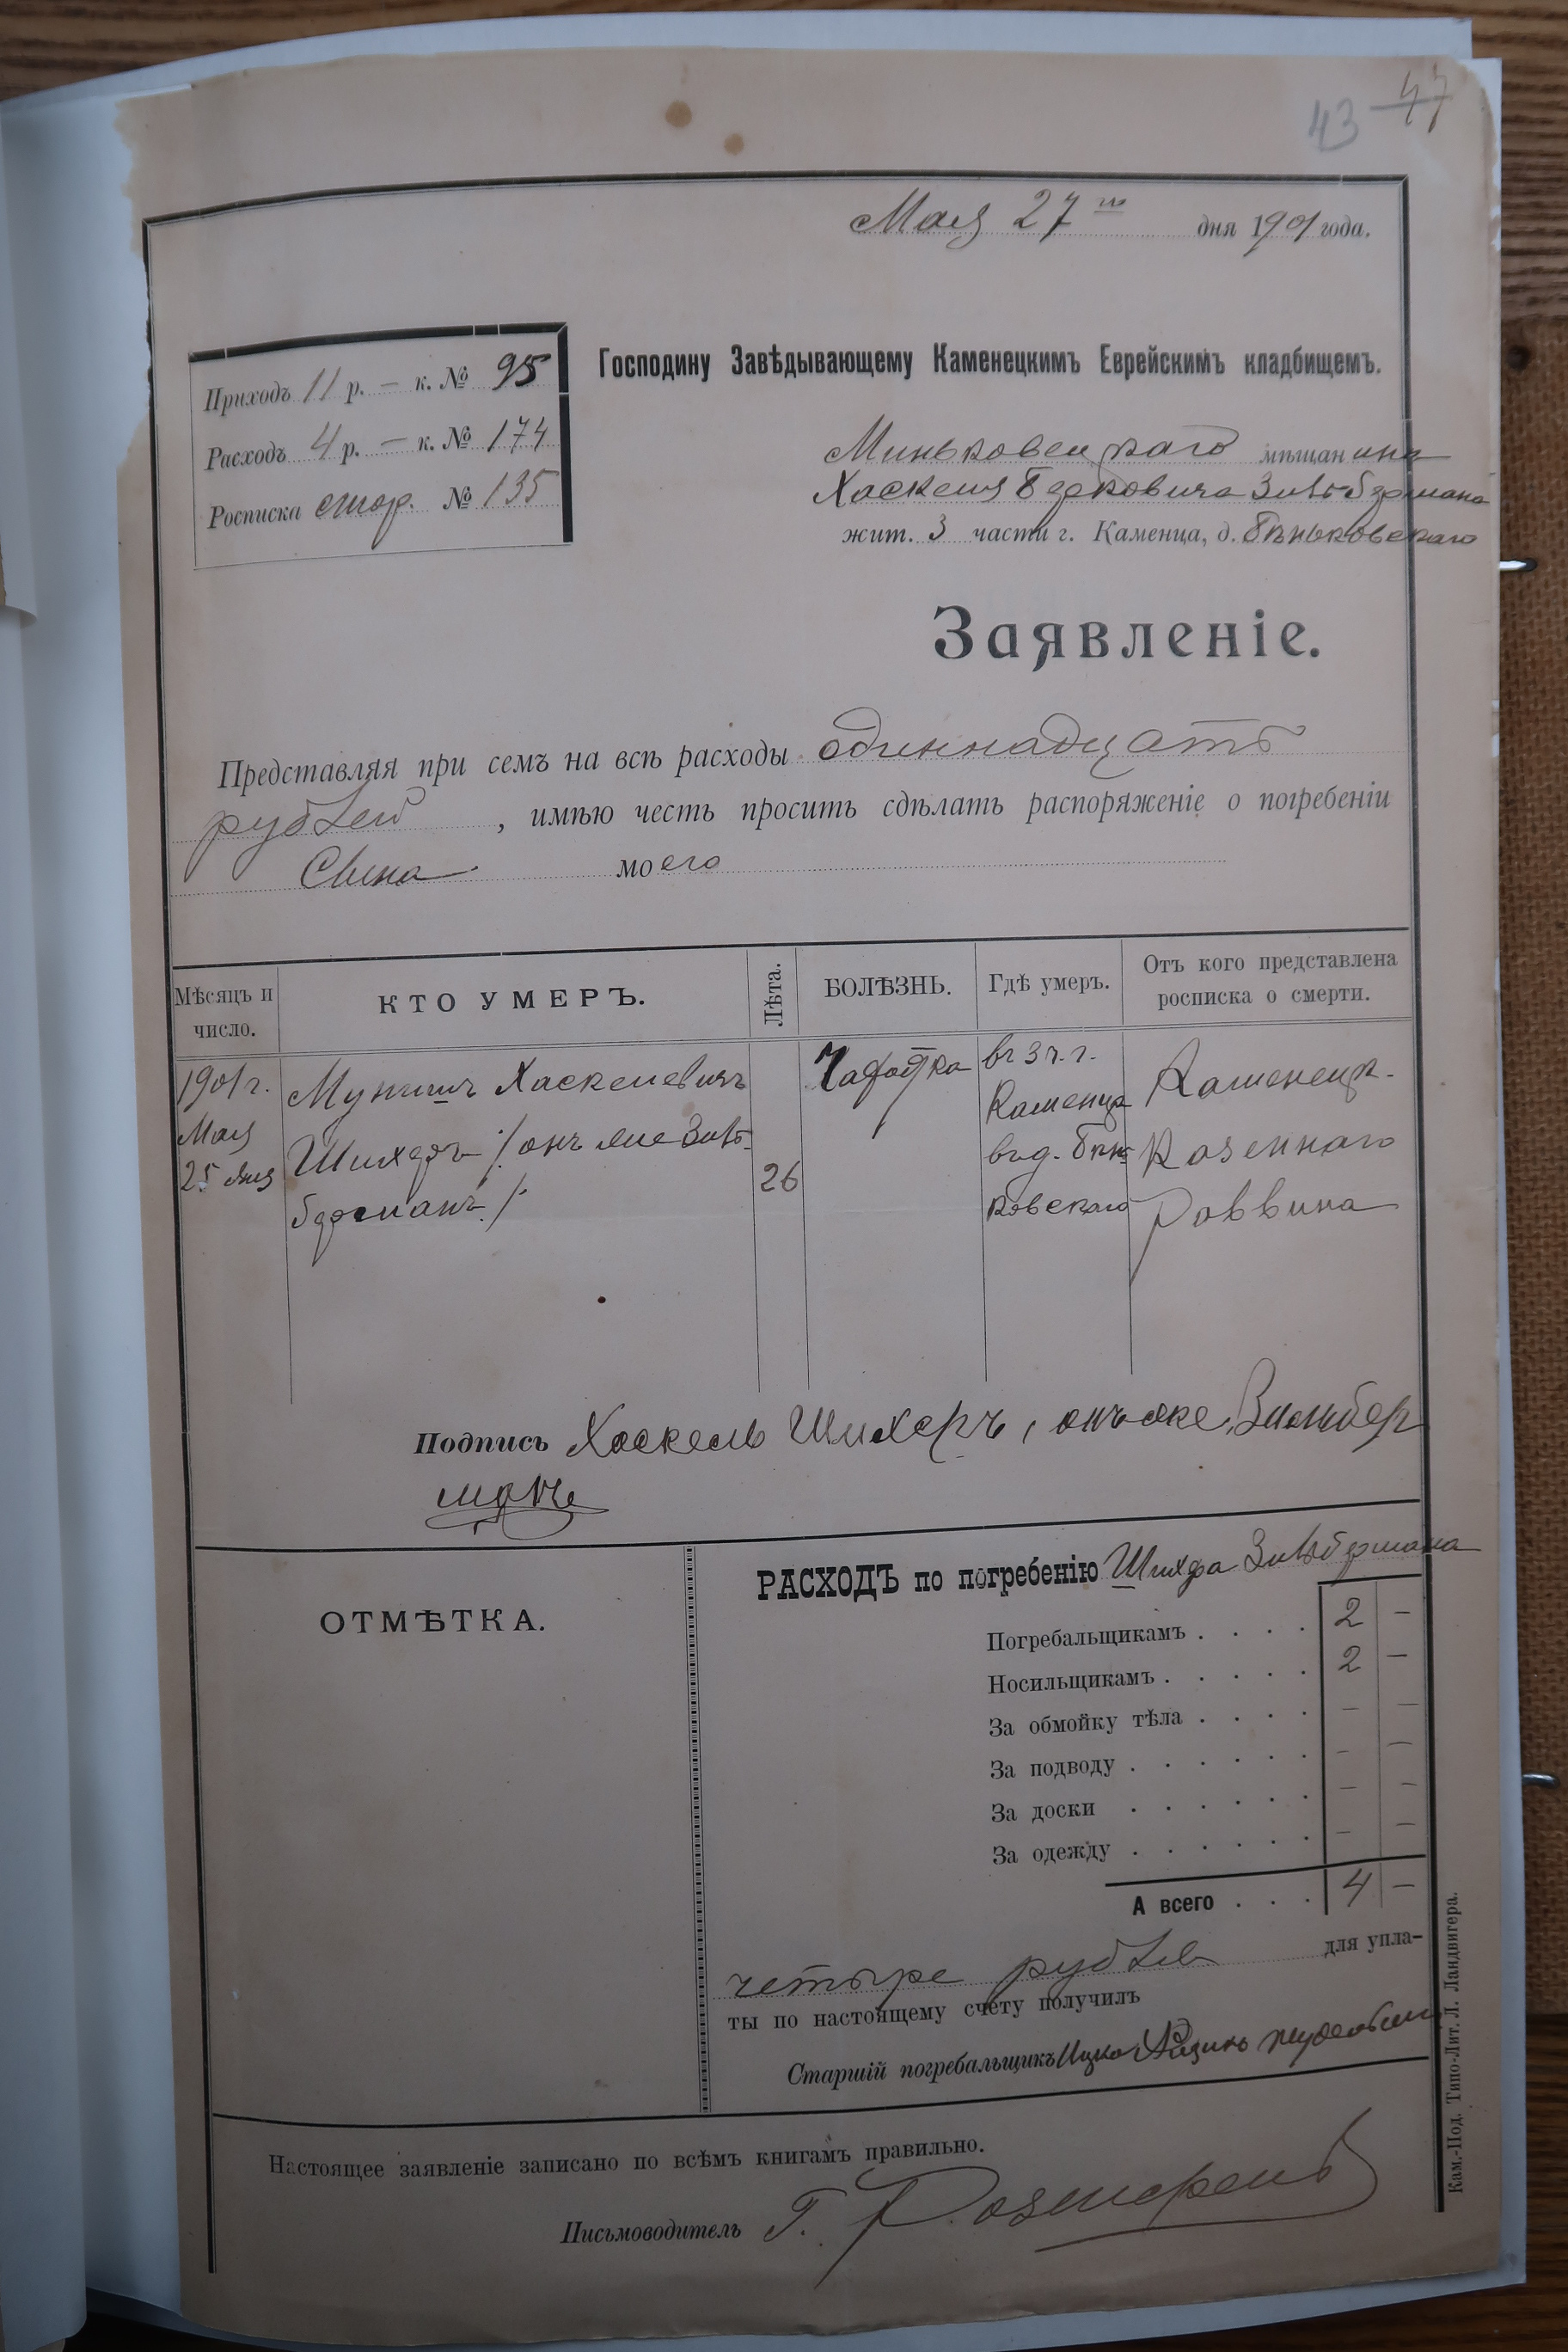 43 47
Мая 27го дня 1901 года.
Приходъ 11 р. — к. № 95
Расходъ 4 р. — к. № 174
Росписка стор. № 135
Господину Завѣдывающему Каменецкимъ Еврейскимъ кладбищемъ.
Миньковецкаго мѣщанина
Хаскеля Берковича Зильбермана
жит. 3 части г. Каменца, д. Бѣньковскаго
Заявленіе.
Представляя при семъ на всѣ расходы одиннадцать
рублей, имѣю честь просить сдѣлать распоряженіе о погребеніи
Сына моего
Мѣсяцъ и число.
КТО УМЕРЪ.
Лѣта.
БОЛѢЗНЬ.
Гдѣ умеръ.
Отъ кого представлена росписка о смерти.
1901 г.
Мая
25 дня
Хаскелевичъ
Шихеръ /онъ же Зиль-
берманъ/
26
Чахотка
въ 3 ч. г.
Каменца
въ д. Бѣнь-
ковскаго
Каменецк.
Казеннаго
Раввина
Подпись Хаскель Шихеръ, онъ же, Зильбер
манъ
ОТМѢТКА.
РАСХОДЪ по погребенію Шихера Зильбермана
Погребальщикамъ . . . . 2 —
Носильщикамъ . . . . . 2 —
За обмойку тѣла . . . . — —
За подводу . . . . . . — —
За доски . . . . . . — —
За одежду . . . . . . — —
А всего . . . 4 —
четыре рубля для упла-
ты по настоящему счету получилъ
Старшій погребальщикъ Ицко
Настоящее заявленіе записано по всѣмъ книгамъ правильно.
Письмоводитель Г.
Кам.-Под. Типо-Лит. Л. Ландвигера.